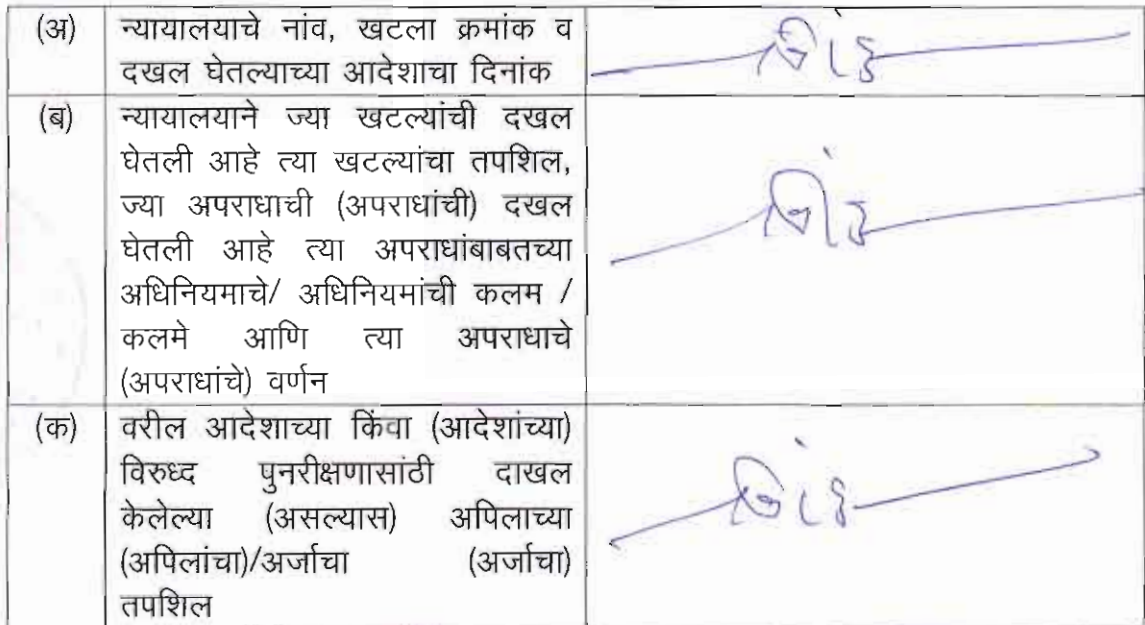 (अ) न्यायालयाचे नांव, खटला क्रमांक व
दखल घेतल्याच्या आदेशाचा दिनांक
(ब) न्यायालयाने ज्या खटल्यांची दखल
घेतली आहे त्या खटल्यांचा तपशिल,
ज्या अपराधाची (अपराधांची) दखल
घेतली आहे त्या अपराधांबाबतच्या
अधिनियमाचे/ अधिनियमांची कलम /
कलमे आणि त्या अपराधाचे
(अपराधांचे) वर्णन
(क) वरील आदेशाच्या किंवा (आदेशांच्या)
विरुध्द पुनरीक्षणासांठी दाखल
केलेल्या (असल्यास) अपिलाच्या
(अपिलांचा)/अर्जाचा (अर्जाचा)
तपशिल